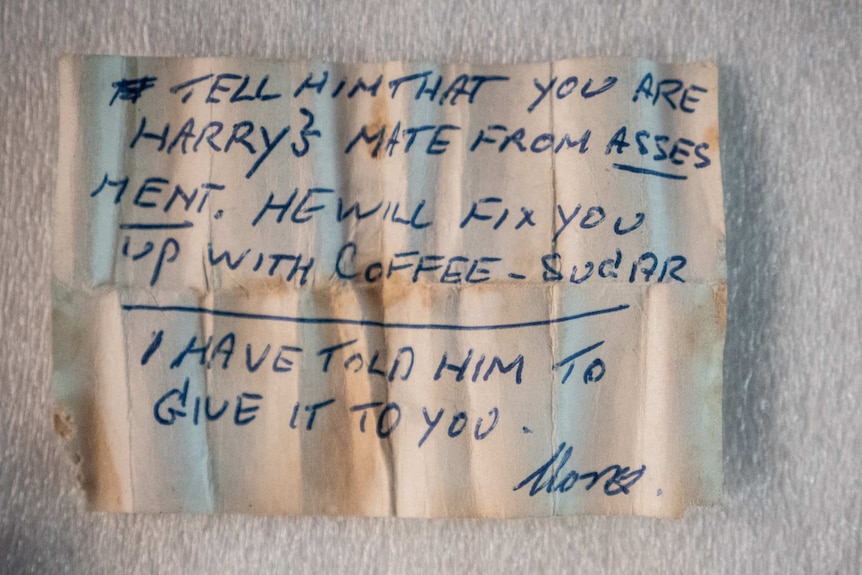 TELL HIM THAT YOU ARE
HARRY'S MATE FROM ASSES
MENT. HE WILL FIX YOU
UP WITH COFFEE - SUGAR
I HAVE TOLD HIM TO
GIVE IT TO YOU.